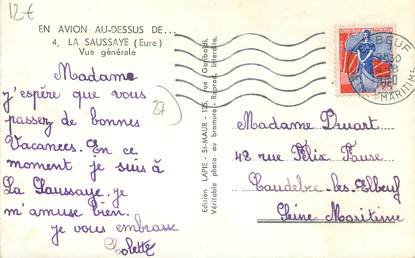 12€
EN AVION AU-DESSUS DE...
4, LA SAUSSAYE (Eure)
Vue générale
Madame
j'espère que vous
passez de bonnes
Vacances. En ce
moment je suis à
La Saussaye. je
m'amuse bien.
je vous embrasse
Colette
27)
Edition LAPIE - St-MAUR - 125, rue Garibaldi
Véritable photo au bromure - Reprod. interdite.
Madame Duart
48 rue Félix Faure
Caudebec-les-Elbeuf
Seine Maritime